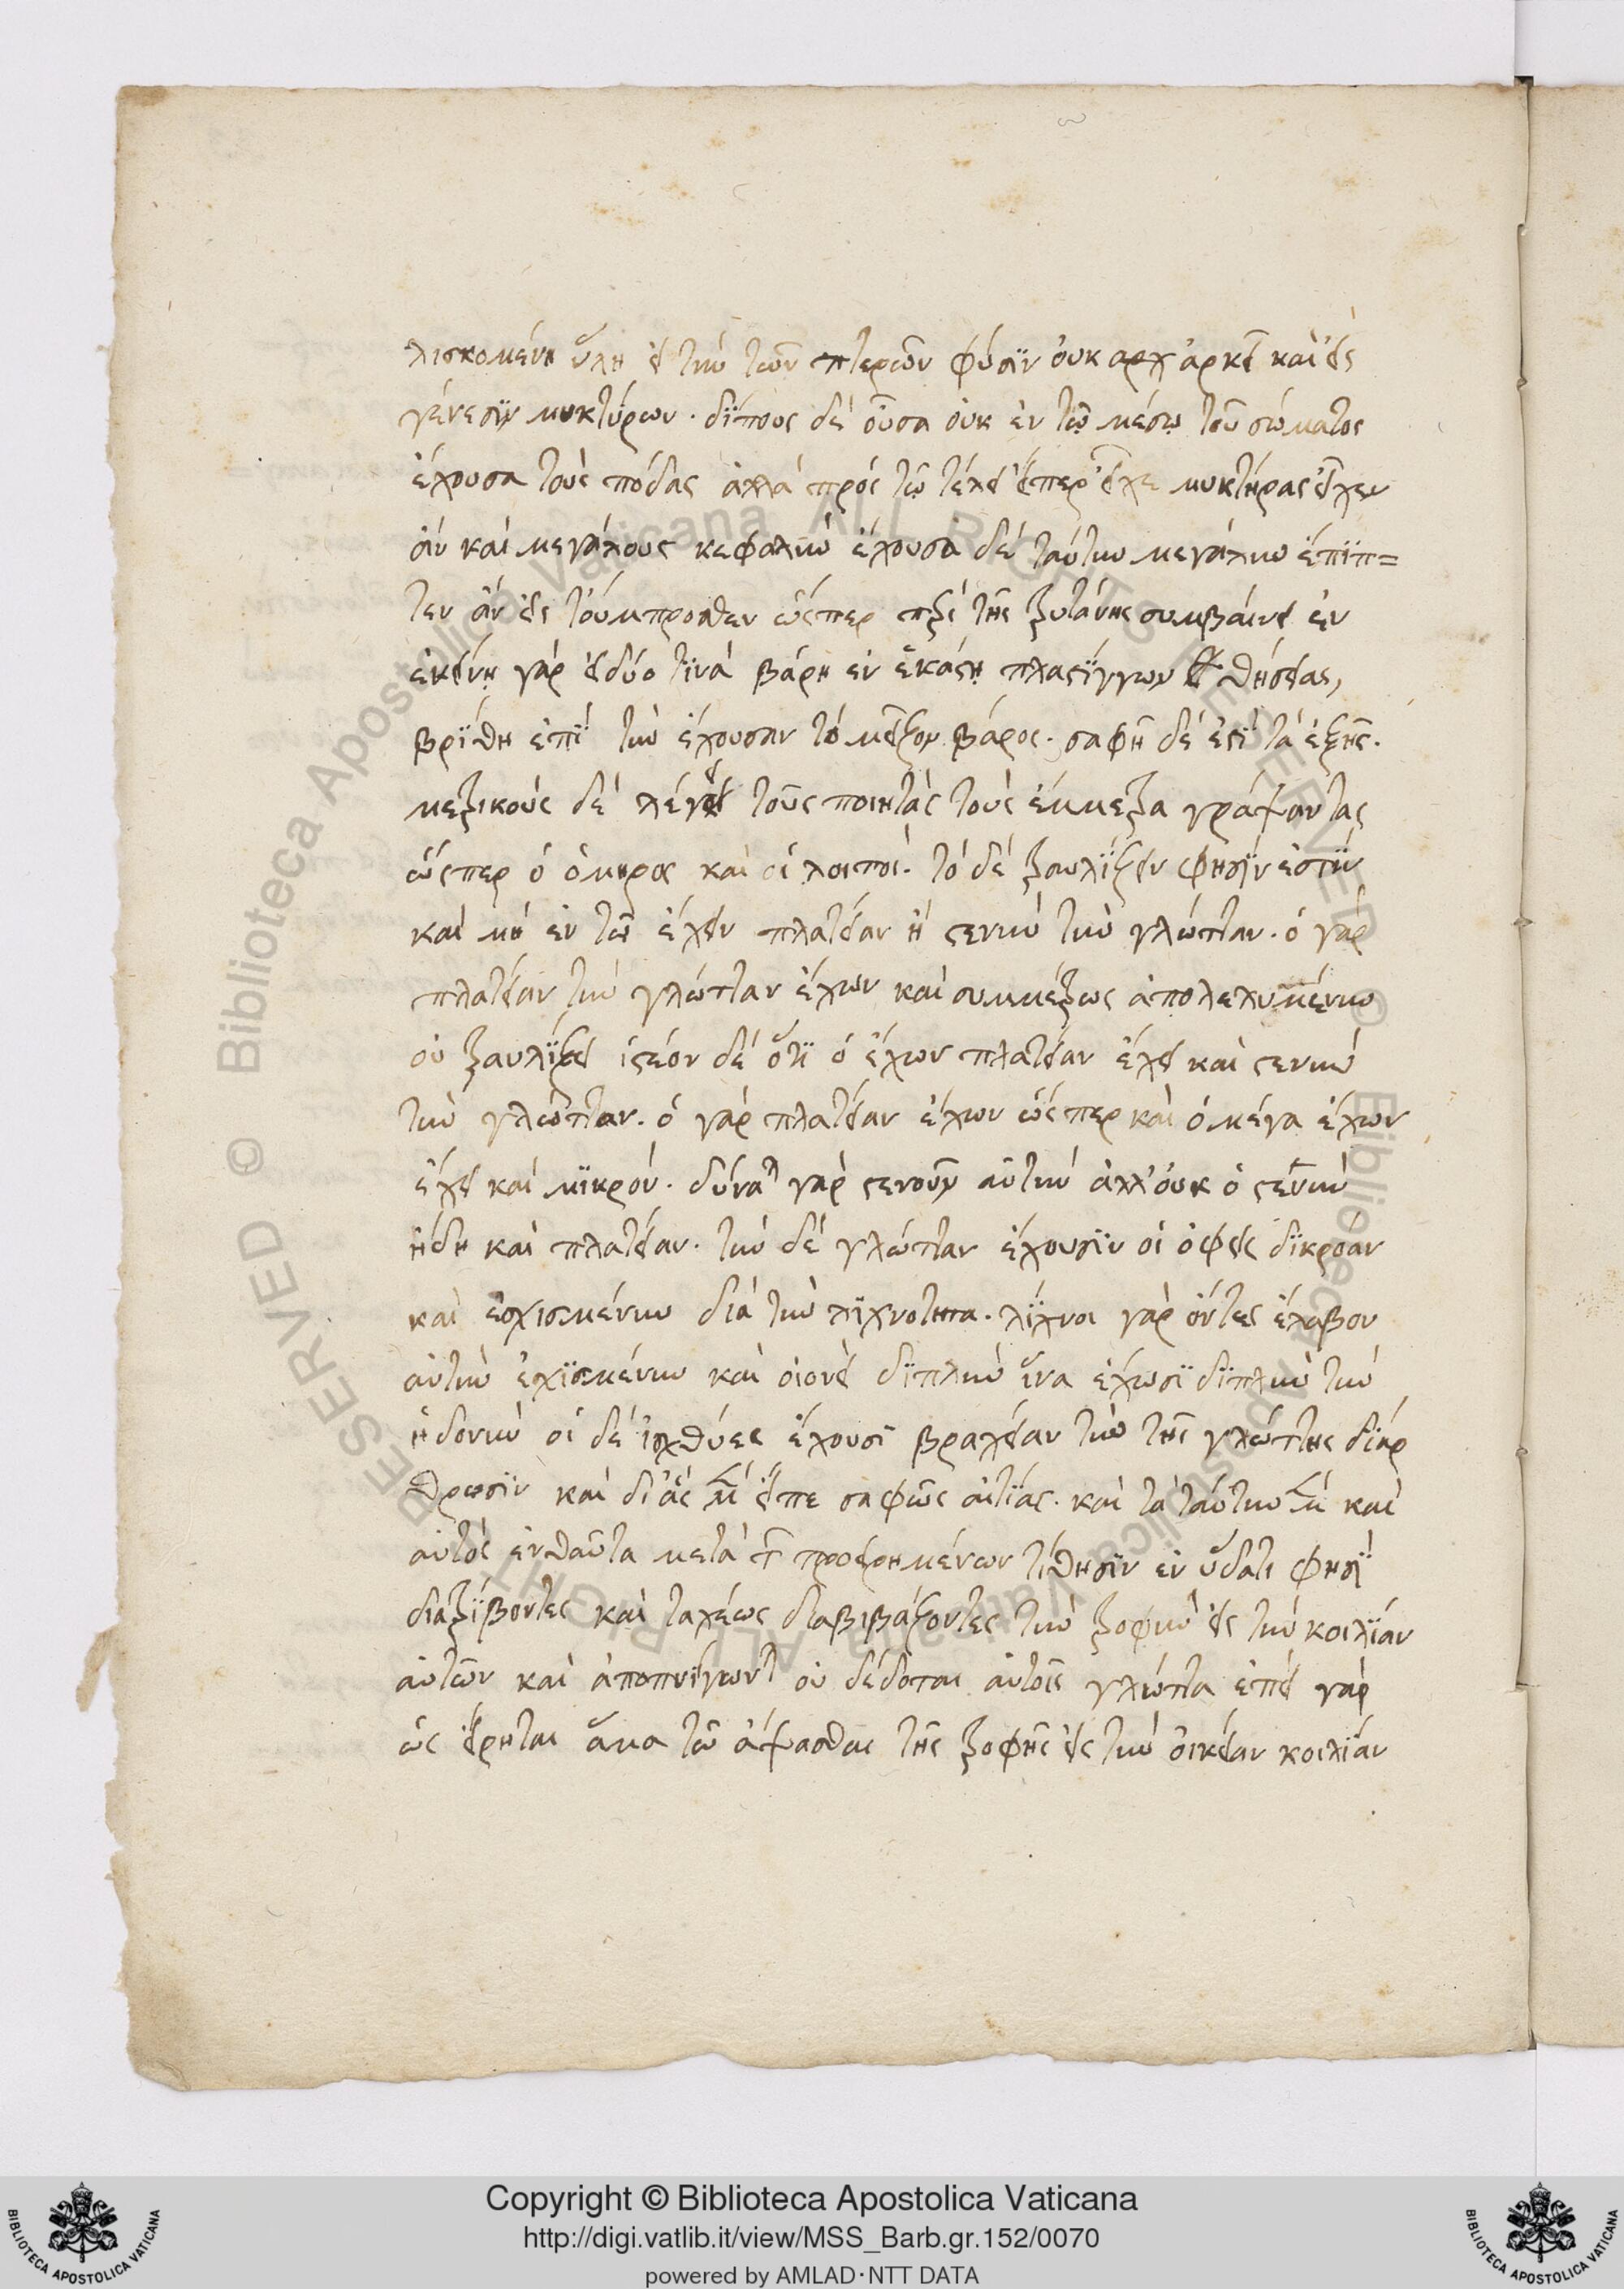 λισκομένη ὕλη εἰ τὴν τῶν πτερῶν φύσϊν οὐκ ἀρκεῖ καὶ εἰς
γένεσϊν μυκτήρων. δίπους δὲ οὖσα οὐκ ἐν τῷ μέσῳ τοῦ σώματος
ἔχουσα τοὺς πόδας ἀλλὰ πρὸς τῷ τέλει εἴπερ εἶχε μυκτῆρας εἶχεν
ἂν καὶ μεγάλους κεφαλὴν ἔχουσα δὲ ταύτην μεγάλην ἔπϊπ=
τεν ἂν εἰς τοὔμπροσθεν ὥσπερ τῆς τρυτάνης συμβαίνει ἐν
ἐκείνῃ γὰρ εἰ δύο τϊνὰ βάρη ἐν ἑκάστῃ πλαστίγγων θήσειας,
βρίθη ἐπὶ τὴν ἔχουσαν τὸ μεῖζον βάρος. σαφῆ δέ ἐστι τὰ ἑξῆς.
μετρικοὺς δὲ λέγει τοὺς ποιητὰς τοὺς ἔμμετρα γράψαντας
ὥσπερ ὁ ὅμηρος καὶ οἱ λοιποί. τὸ δὲ τραυλίζειν φησὶν ἐστὶν
καὶ μὴ ἐν τῷ ἔχειν πλατεῖαν ἢ στενὴν τὴν γλῶτταν. ὁ γὰρ
πλατεῖαν τὴν γλῶτταν ἔχων καὶ συμμέτρως ἀπολελυμένην
οὐ τραυλίζει ἰστέον δὲ ὅτι ὁ ἔχων πλατεῖαν ἔχει καὶ στενὴν
τὴν γλῶτταν. ὁ γὰρ πλατεῖαν ἔχων ὥσπερ καὶ ὁ μέγα ἔχων
ἔχει καὶ μϊκρόν. δύναται γὰρ στενοῦν αὐτὴν ἀλλ' οὐκ ὁ στενὴν
ἤδη καὶ πλατεῖαν. τὴν δὲ γλῶτταν ἔχουσϊν οἱ ὄφεις δϊκρόαν
καὶ ἐσχισμένην διὰ τὴν λϊχνότητα. λίχνοι γὰρ ὄντες ἔλαβον
αὐτὴν ἐσχϊσμένην καὶ οἱονεὶ δϊπλὴν ἵνα ἔχωσϊ δϊπλὴν τὴν
ἡδονὴν οἱ δὲ ἰχθύες ἔχουσϊ βραχεῖαν τὴν τῆς γλώττης δϊάρ
θρωσϊν καὶ δι' ἃς εἶπε σαφῶς αἰτίας. καὶ τὰ ταύτην καὶ
αὐτὸς ἐνταῦθα μετὰ τῶν προειρημένων τίθησϊν ἐν ὕδατι φησὶ
διατρίβοντες καὶ ταχέως διαβιβάζοντες τὴν τροφὴν εἰς τὴν κοιλίαν
αὐτῶν καὶ ἀποπνίγωντ οὐ δέδοται αὐτοῖς γλῶττα ἐπεὶ γὰρ
ὡς εἴρηται ἅμα τῷ ἅψασθαι τῆς τροφῆς εἰς τὴν οἰκείαν κοιλίαν
Copyright © Biblioteca Apostolica Vaticana
http://digi.vatlib.it/view/MSS_Barb.gr.152/0070
powered by AMLAD·NTT DATA